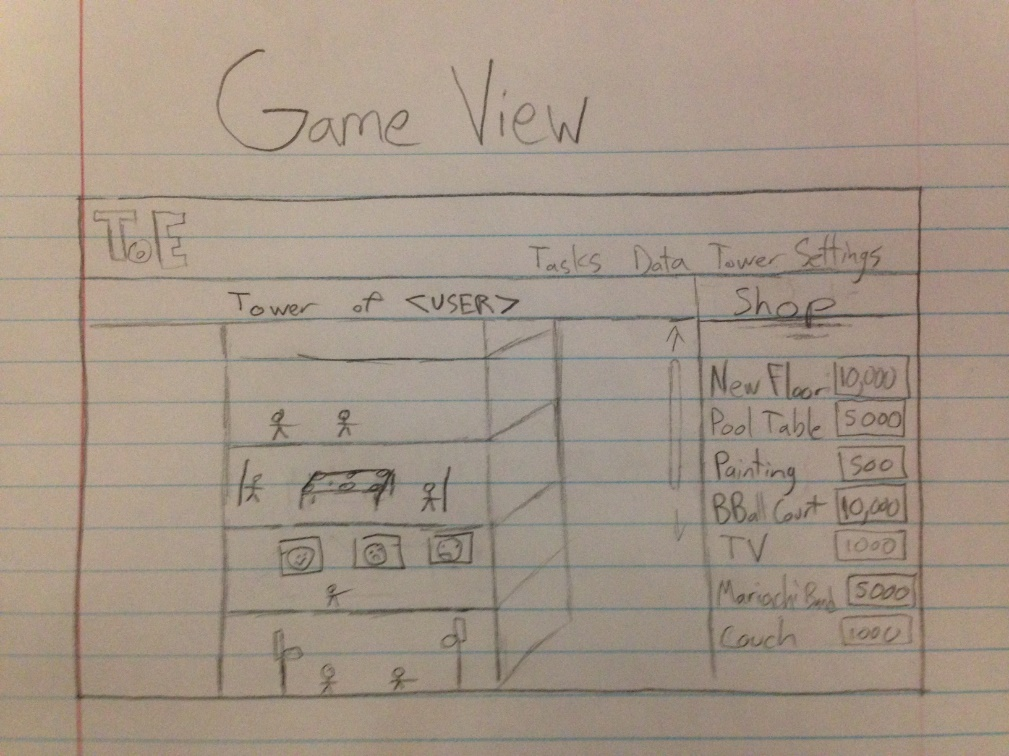 Game View
ToE
Tasks Data Tower Settings
Tower of <USER>
Shop
New Floor 10,000
Pool Table 5000
Painting 500
BBall Court 10,000
TV 1000
Mariachi Band 5000
Couch 1000